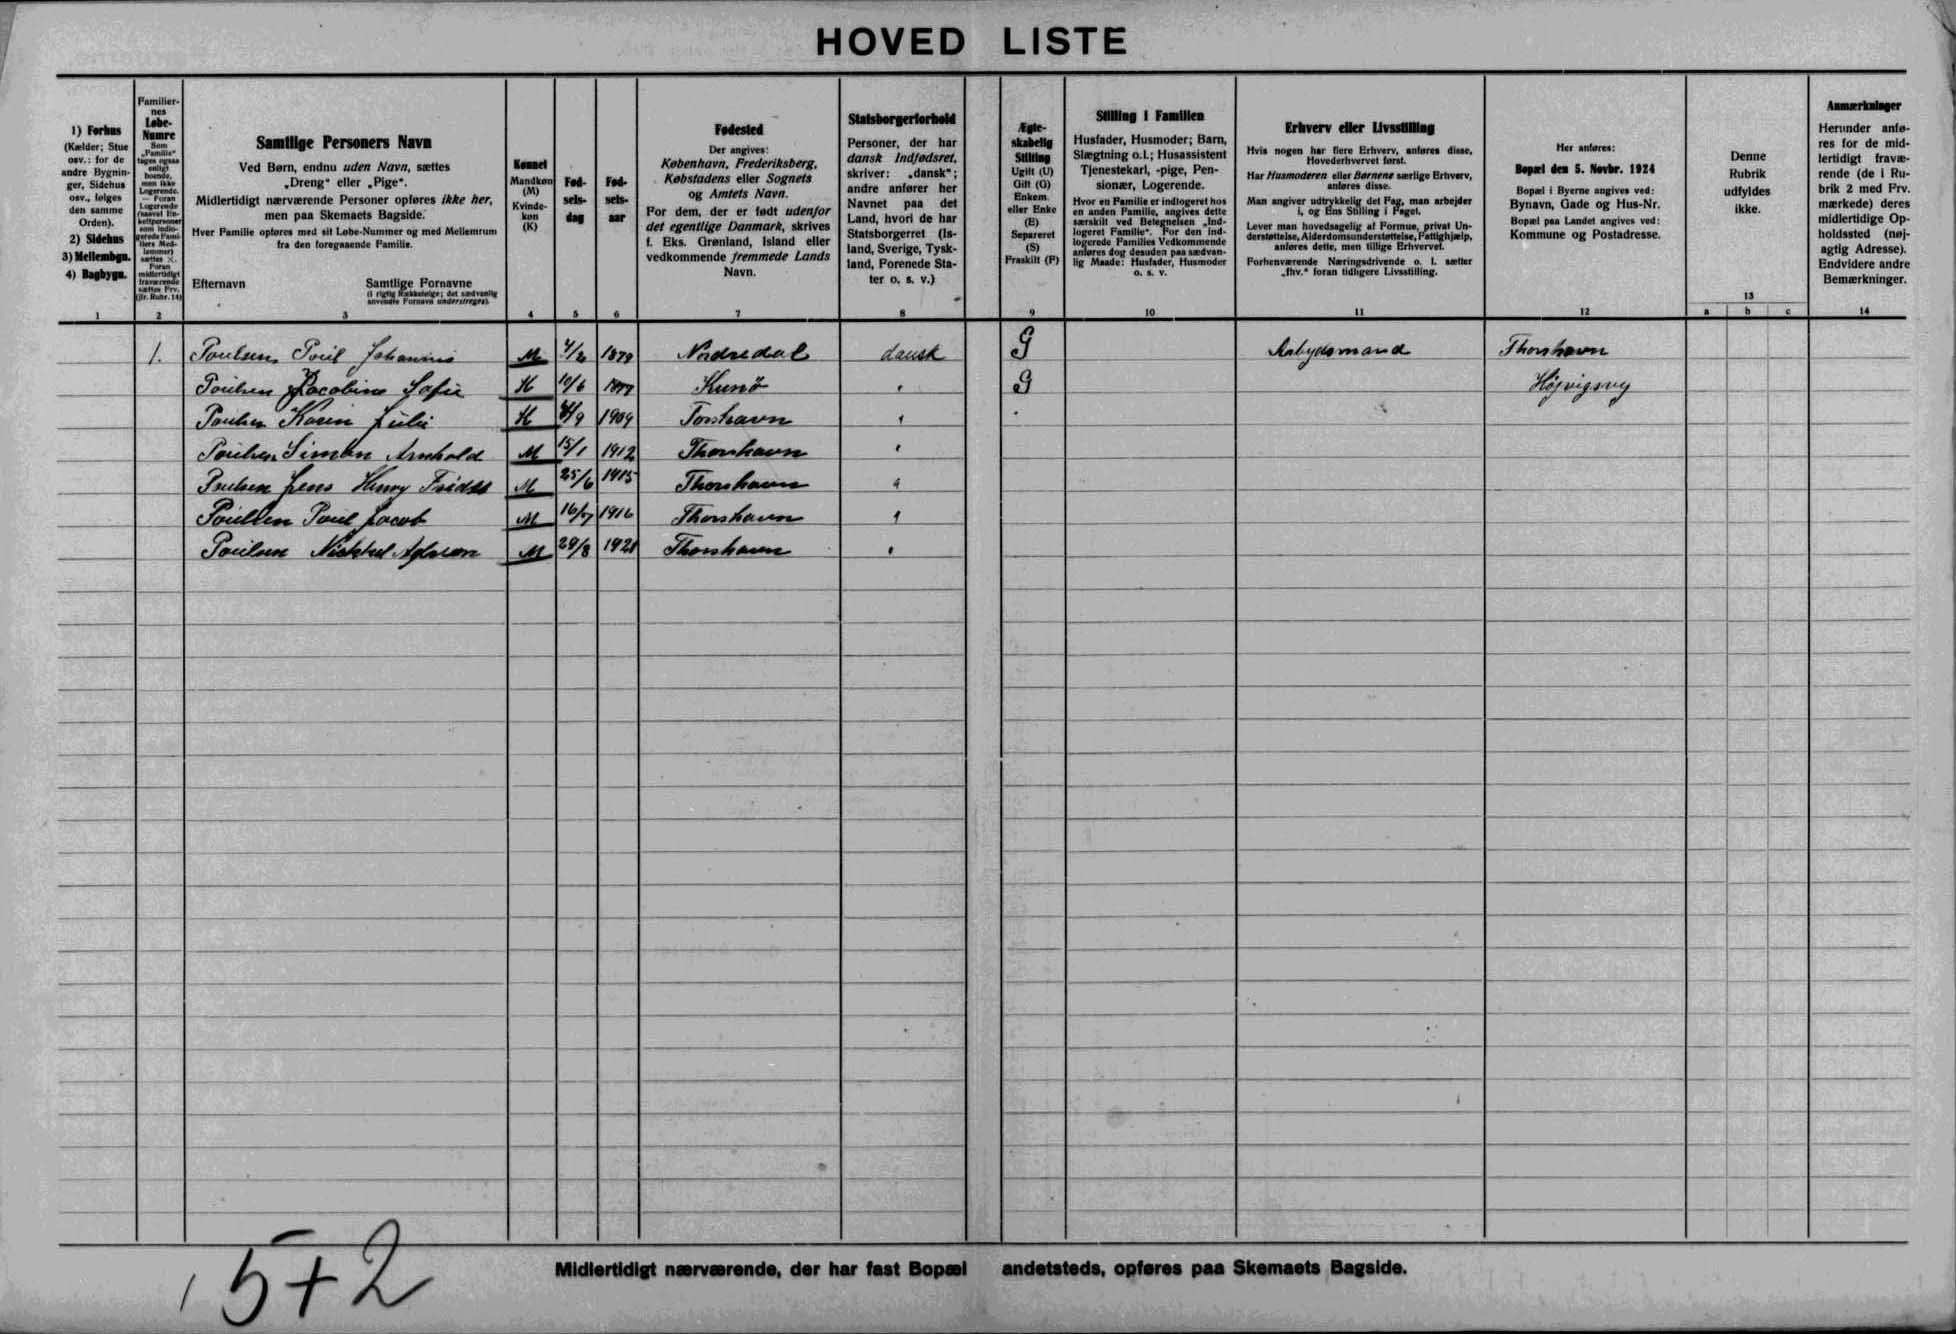 HOVED LISTE
1) Forhus
(Kælder; Stue
osv.: for de
andre Bygnin-
ger, Sidehus
osv., følges
den samme
Orden).
2) Sidehus
3) Mellembgn.
4) Bagbygn.
1
Familier-
nes
Løbe-
Numre
Som
„Familie“
tages ogsaa
enligt
boende,
men ikke
Logerende.
— Foran
Logerende
(saavel En-
keltpersoner
som indlo-
gerede Fami-
liers Med-
lemmer)
sættes ×.
Foran
midlertidigt
fraværende
sættes Frv.
(jfr. Rubr. 14)
2
Samtlige Personers Navn
Ved Børn, endnu uden Navn, sættes
„Dreng“ eller „Pige“.
Midlertidigt nærværende Personer opføres ikke her,
men paa Skemaets Bagside.
Hver Familie opføres med sit Løbe-Nummer og med Mellemrum
fra den foregaaende Familie.
Efternavn Samtlige Fornavne
(i rigtig Rækkefølge; det sædvanlig
anvendte Fornavn understreges).
3
Kønnet
Mandkøn
(M)
Kvinde-
køn
(K)
4
Fød-
sels-
dag
5
Fød-
sels-
aar
6
Fødested
Der angives:
København, Frederiksberg,
Købstadens eller Sognets
og Amtets Navn.
For dem, der er født udenfor
det egentlige Danmark, skrives
f. Eks. Grønland, Island eller
vedkommende fremmede Lands
Navn.
7
Statsborgerforhold
Personer, der har
dansk Indfødsret,
skriver: „dansk“;
andre anfører her
Navnet paa det
Land, hvori de har
Statsborgerret (Is-
land, Sverige, Tysk-
land, Forenede Sta-
ter o. s. v.)
8
Ægte-
skabelig
Stilling
Ugift (U)
Gift (G)
Enkem.
eller Enke
(E)
Separeret
(S)
Fraskilt (F)
9
Stilling i Familien
Husfader, Husmoder; Barn,
Slægtning o.l.; Husassistent
Tjenestekarl, -pige, Pen-
sionær, Logerende.
Hvor en Familie er indlogeret hos
en anden Familie, angives dette
særskilt ved Betegnelsen „Ind-
logeret Familie“. For den ind-
logerede Families Vedkommende
anføres dog desuden paa sædvan-
lig Maade: Husfader, Husmoder
o. s. v.
10
Erhverv eller Livsstilling
Hvis nogen har flere Erhverv, anføres disse,
Hovederhvervet først.
Har Husmoderen eller Børnene særlige Erhverv,
anføres disse.
Man angiver udtrykkelig det Fag, man arbejder
i, og Ens Stilling i Faget.
Lever man hovedsagelig af Formue, privat Un-
derstøttelse, Alderdomsunderstøttelse, Fattighjælp,
anføres dette, men tillige Erhvervet.
Forhenværende Næringsdrivende o. l. sætter
„fhv.“ foran tidligere Livsstilling.
11
Her anføres:
Bopæl den 5. Novbr. 1924
Bopæl i Byerne angives ved:
Bynavn, Gade og Hus-Nr.
Bopæl paa Landet angives ved:
Kommune og Postadresse.
12
Denne
Rubrik
udfyldes
ikke.
13
a b c
Anmærkninger
Herunder anfø-
res for de mid-
lertidigt fravæ-
rende (de i Ru-
brik 2 med Frv.
mærkede) deres
midlertidige Op-
holdssted (nøj-
agtig Adresse).
Endvidere andre
Bemærkninger.
14
1. Poulsen Poul Johannis M 4/2 1879 Nordredal dansk G Arbejdsmand Thorshavn
Poulsen Jacobine Sofie K 10/6 Kunö " G Højvigsvej
Poulsen Karin Julie K /9 1909 Torshavn "
Poulsen Simon Arnhold M 15/1 1912 Thorshavn "
Poulsen Jens Henry M 25/6 1915 Thorshavn "
Poulsen Poul Jacob M 16/7 1916 Thorshavn "
Poulsen M 29/8 1921 Thorshavn "
5+2
Midlertidigt nærværende, der har fast Bopæl andetsteds, opføres paa Skemaets Bagside.